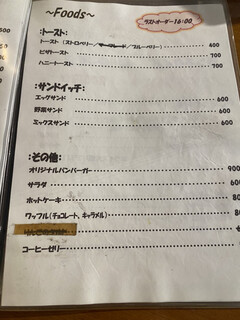 ~Foods~
ラストオーダー16:00
:トースト:
トースト (ストロベリー／マーマレード／ブルーベリー) 600
ピザトースト 700
ハニートースト 700
:サンドイッチ:
エッグサンド
野菜サンド
ミックスサンド
:その他:
オリジナルハンバーガー 900
サラダ
ホットケーキ
ワッフル(チョコレート、キャラメル)
コーヒーゼリー